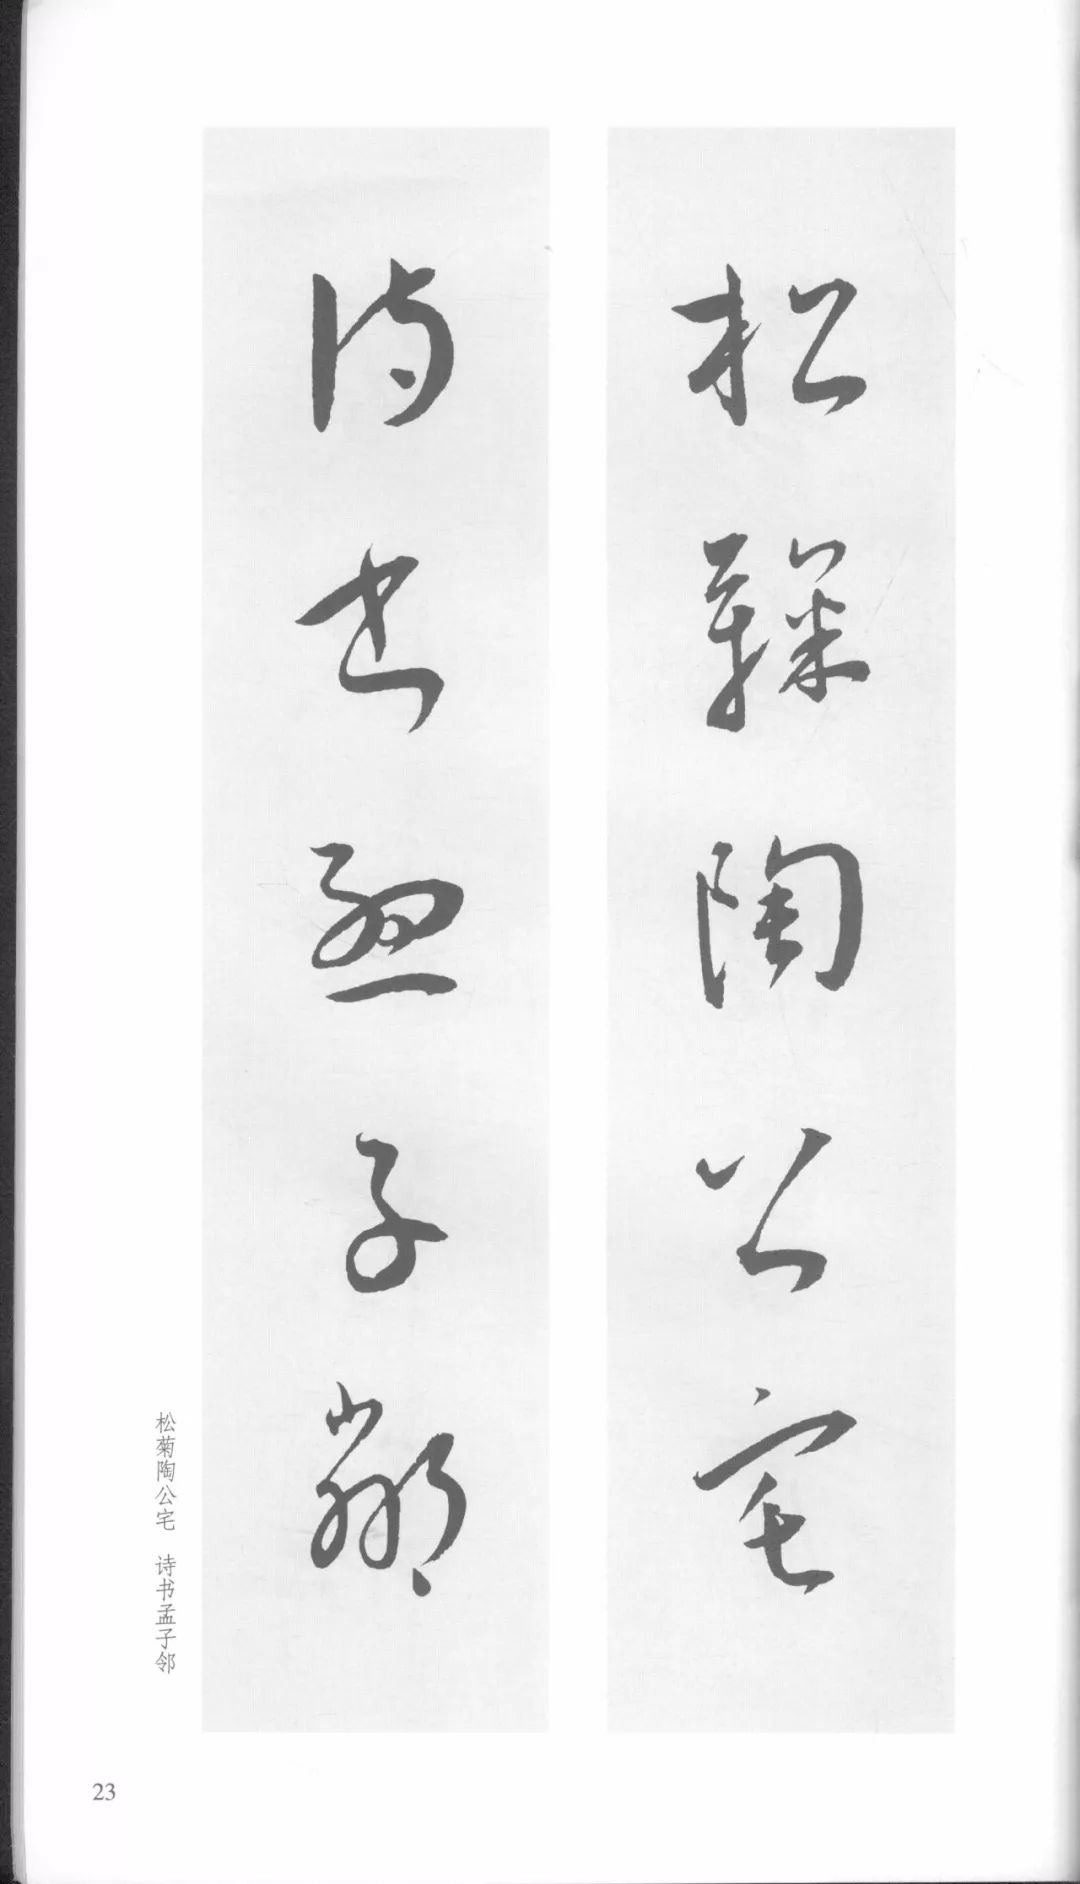 松鞠陶公宅
诗书孟子邻
松菊陶公宅 诗书孟子邻
23